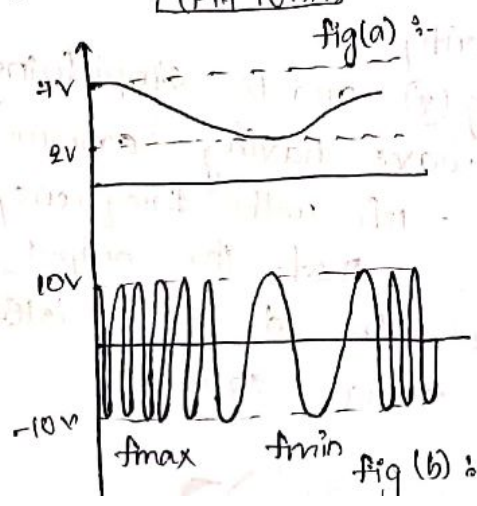 fig(a) :-
4V
2V
10V
-10V
fmax
fmin
fig (b) :